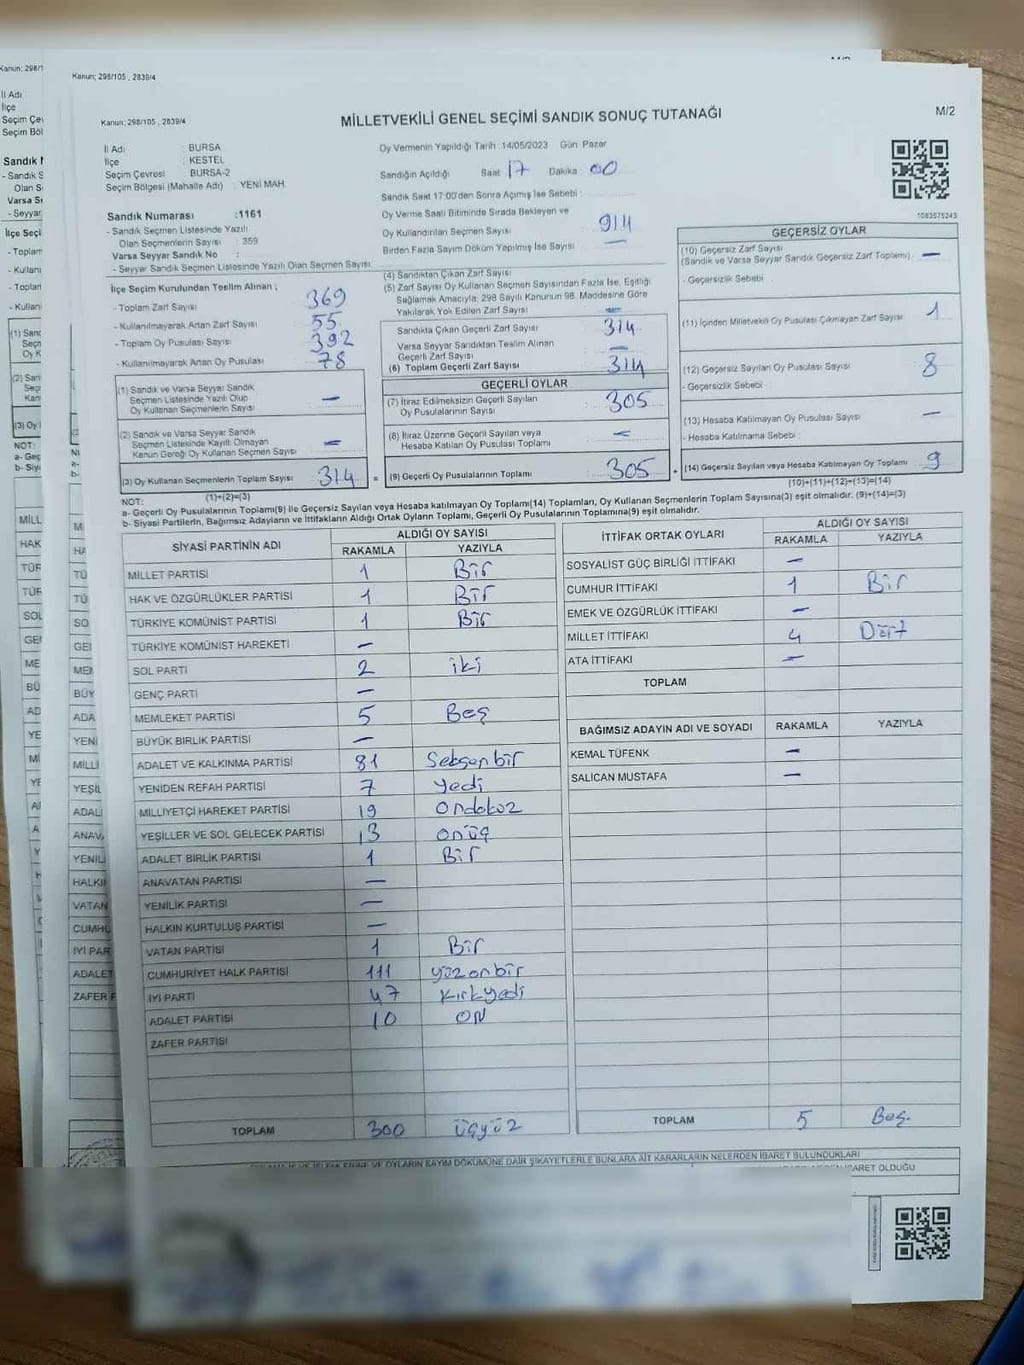 Kanun: 298/105 , 2839/4
Kanun: 298/105 , 2839/4
MİLLETVEKİLİ GENEL SEÇİMİ SANDIK SONUÇ TUTANAĞI
M/2
İl Adı : BURSA
İlçe : KESTEL
Seçim Çevresi : BURSA-2
Seçim Bölgesi (Mahalle Adı) : YENİ MAH.
Oy Vermenin Yapıldığı Tarih :14/05/2023 Gün Pazar
Sandığın Açıldığı Saat 17 Dakika 00
Sandık Saat 17:00'den Sonra Açımış İse Sebebi :
Oy Verme Saati Bitiminde Sırada Bekleyen ve
Oy Kullandırılan Seçmen Sayısı : 914
Birden Fazla Sayım Döküm Yapılmış İse Sayısı : —
1083575243
Sandık Numarası :1161
- Sandık Seçmen Listesinde Yazılı
Olan Seçmenlerin Sayısı : 359
Varsa Seyyar Sandık No :
- Seyyar Sandık Seçmen Listesinde Yazılı Olan Seçmen Sayısı:
İlçe Seçim Kurulundan Teslim Alınan ;
- Toplam Zarf Sayısı : 369
- Kullanılmayarak Artan Zarf Sayısı : 55
- Toplam Oy Pusulası Sayısı : 392
- Kullanılmayarak Artan Oy Pusulası : 78
(1) Sandık ve Varsa Seyyar Sandık
Seçmen Listesinde Yazılı Olup
Oy Kullanan Seçmenlerin Sayısı : —
(2) Sandık ve Varsa Seyyar Sandık
Seçmen Listesinde Kayıtlı Olmayan
Kanun Gereği Oy Kullanan Seçmen Sayısı : —
(3) Oy Kullanan Seçmenlerin Toplam Sayısı : 314
(1)+(2)=(3)
(4) Sandıktan Çıkan Zarf Sayısı :
(5) Zarf Sayısı Oy Kullanan Seçmen Sayısından Fazla İse, Eşitliği
Sağlamak Amacıyla; 298 Sayılı Kanunun 98. Maddesine Göre
Yakılarak Yok Edilen Zarf Sayısı : —
Sandıkta Çıkan Geçerli Zarf Sayısı : 314
Varsa Seyyar Sandıktan Teslim Alınan
Geçerli Zarf Sayısı : —
(6) Toplam Geçerli Zarf Sayısı : 314
GEÇERLİ OYLAR
(7) İtiraz Edilmeksizin Geçerli Sayılan
Oy Pusulalarının Sayısı : 305
(8) İtiraz Üzerine Geçerli Sayılan veya
Hesaba Katılan Oy Pusulası Toplamı : —
= (9) Geçerli Oy Pusulalarının Toplamı : 305
GEÇERSİZ OYLAR
(10) Geçersiz Zarf Sayısı
(Sandık ve Varsa Seyyar Sandık Geçersiz Zarf Toplamı) : —
- Geçersizlik Sebebi :
(11) İçinden Milletvekili Oy Pusulası Çıkmayan Zarf Sayısı : 1
(12) Geçersiz Sayılan Oy Pusulası Sayısı : 8
- Geçersizlik Sebebi :
(13) Hesaba Katılmayan Oy Pusulası Sayısı : —
- Hesaba Katılmama Sebebi :
+ (14) Geçersiz Sayılan veya Hesaba Katılmayan Oy Toplamı : 9
(10)+(11)+(12)+(13)=(14)
NOT:
a- Geçerli Oy Pusulalarının Toplamı(9) ile Geçersiz Sayılan veya Hesaba katılmayan Oy Toplamı(14) Toplamları, Oy Kullanan Seçmenlerin Toplam Sayısına(3) eşit olmalıdır. (9)+(14)=(3)
b- Siyasi Partilerin, Bağımsız Adayların ve İttifakların Aldığı Ortak Oyların Toplamı, Geçerli Oy Pusulalarının Toplamına(9) eşit olmalıdır.
SİYASİ PARTİNİN ADI ALDIĞI OY SAYISI
RAKAMLA YAZIYLA
MİLLET PARTİSİ 1 Bir
HAK VE ÖZGÜRLÜKLER PARTİSİ 1 Bir
TÜRKİYE KOMÜNİST PARTİSİ 1 Bir
TÜRKİYE KOMÜNİST HAREKETİ —
SOL PARTİ 2 iki
GENÇ PARTİ —
MEMLEKET PARTİSİ 5 Beş
BÜYÜK BİRLİK PARTİSİ —
ADALET VE KALKINMA PARTİSİ 81 Seksenbir
YENİDEN REFAH PARTİSİ 7 yedi
MİLLİYETÇİ HAREKET PARTİSİ 19 Ondokuz
YEŞİLLER VE SOL GELECEK PARTİSİ 13 onüç
ADALET BİRLİK PARTİSİ 1 Bir
ANAVATAN PARTİSİ —
YENİLİK PARTİSİ —
HALKIN KURTULUŞ PARTİSİ —
VATAN PARTİSİ 1 Bir
CUMHURİYET HALK PARTİSİ 111 yüzonbir
İYİ PARTİ 47 Kırkyedi
ADALET PARTİSİ 10 ON
ZAFER PARTİSİ
TOPLAM 300 üçyüz
İTTİFAK ORTAK OYLARI ALDIĞI OY SAYISI
RAKAMLA YAZIYLA
SOSYALİST GÜÇ BİRLİĞİ İTTİFAKI —
CUMHUR İTTİFAKI 1 Bir
EMEK VE ÖZGÜRLÜK İTTİFAKI —
MİLLET İTTİFAKI 4 Dört
ATA İTTİFAKI —
TOPLAM
BAĞIMSIZ ADAYIN ADI VE SOYADI RAKAMLA YAZIYLA
KEMAL TÜFENK —
SALİCAN MUSTAFA —
TOPLAM 5 Beş.
VE OYLARIN SAYIM DÖKÜMÜNE DAİR ŞİKAYETLERLE BUNLARA AİT KARARLARIN NELERDEN İBARET BULUNDUKLARI